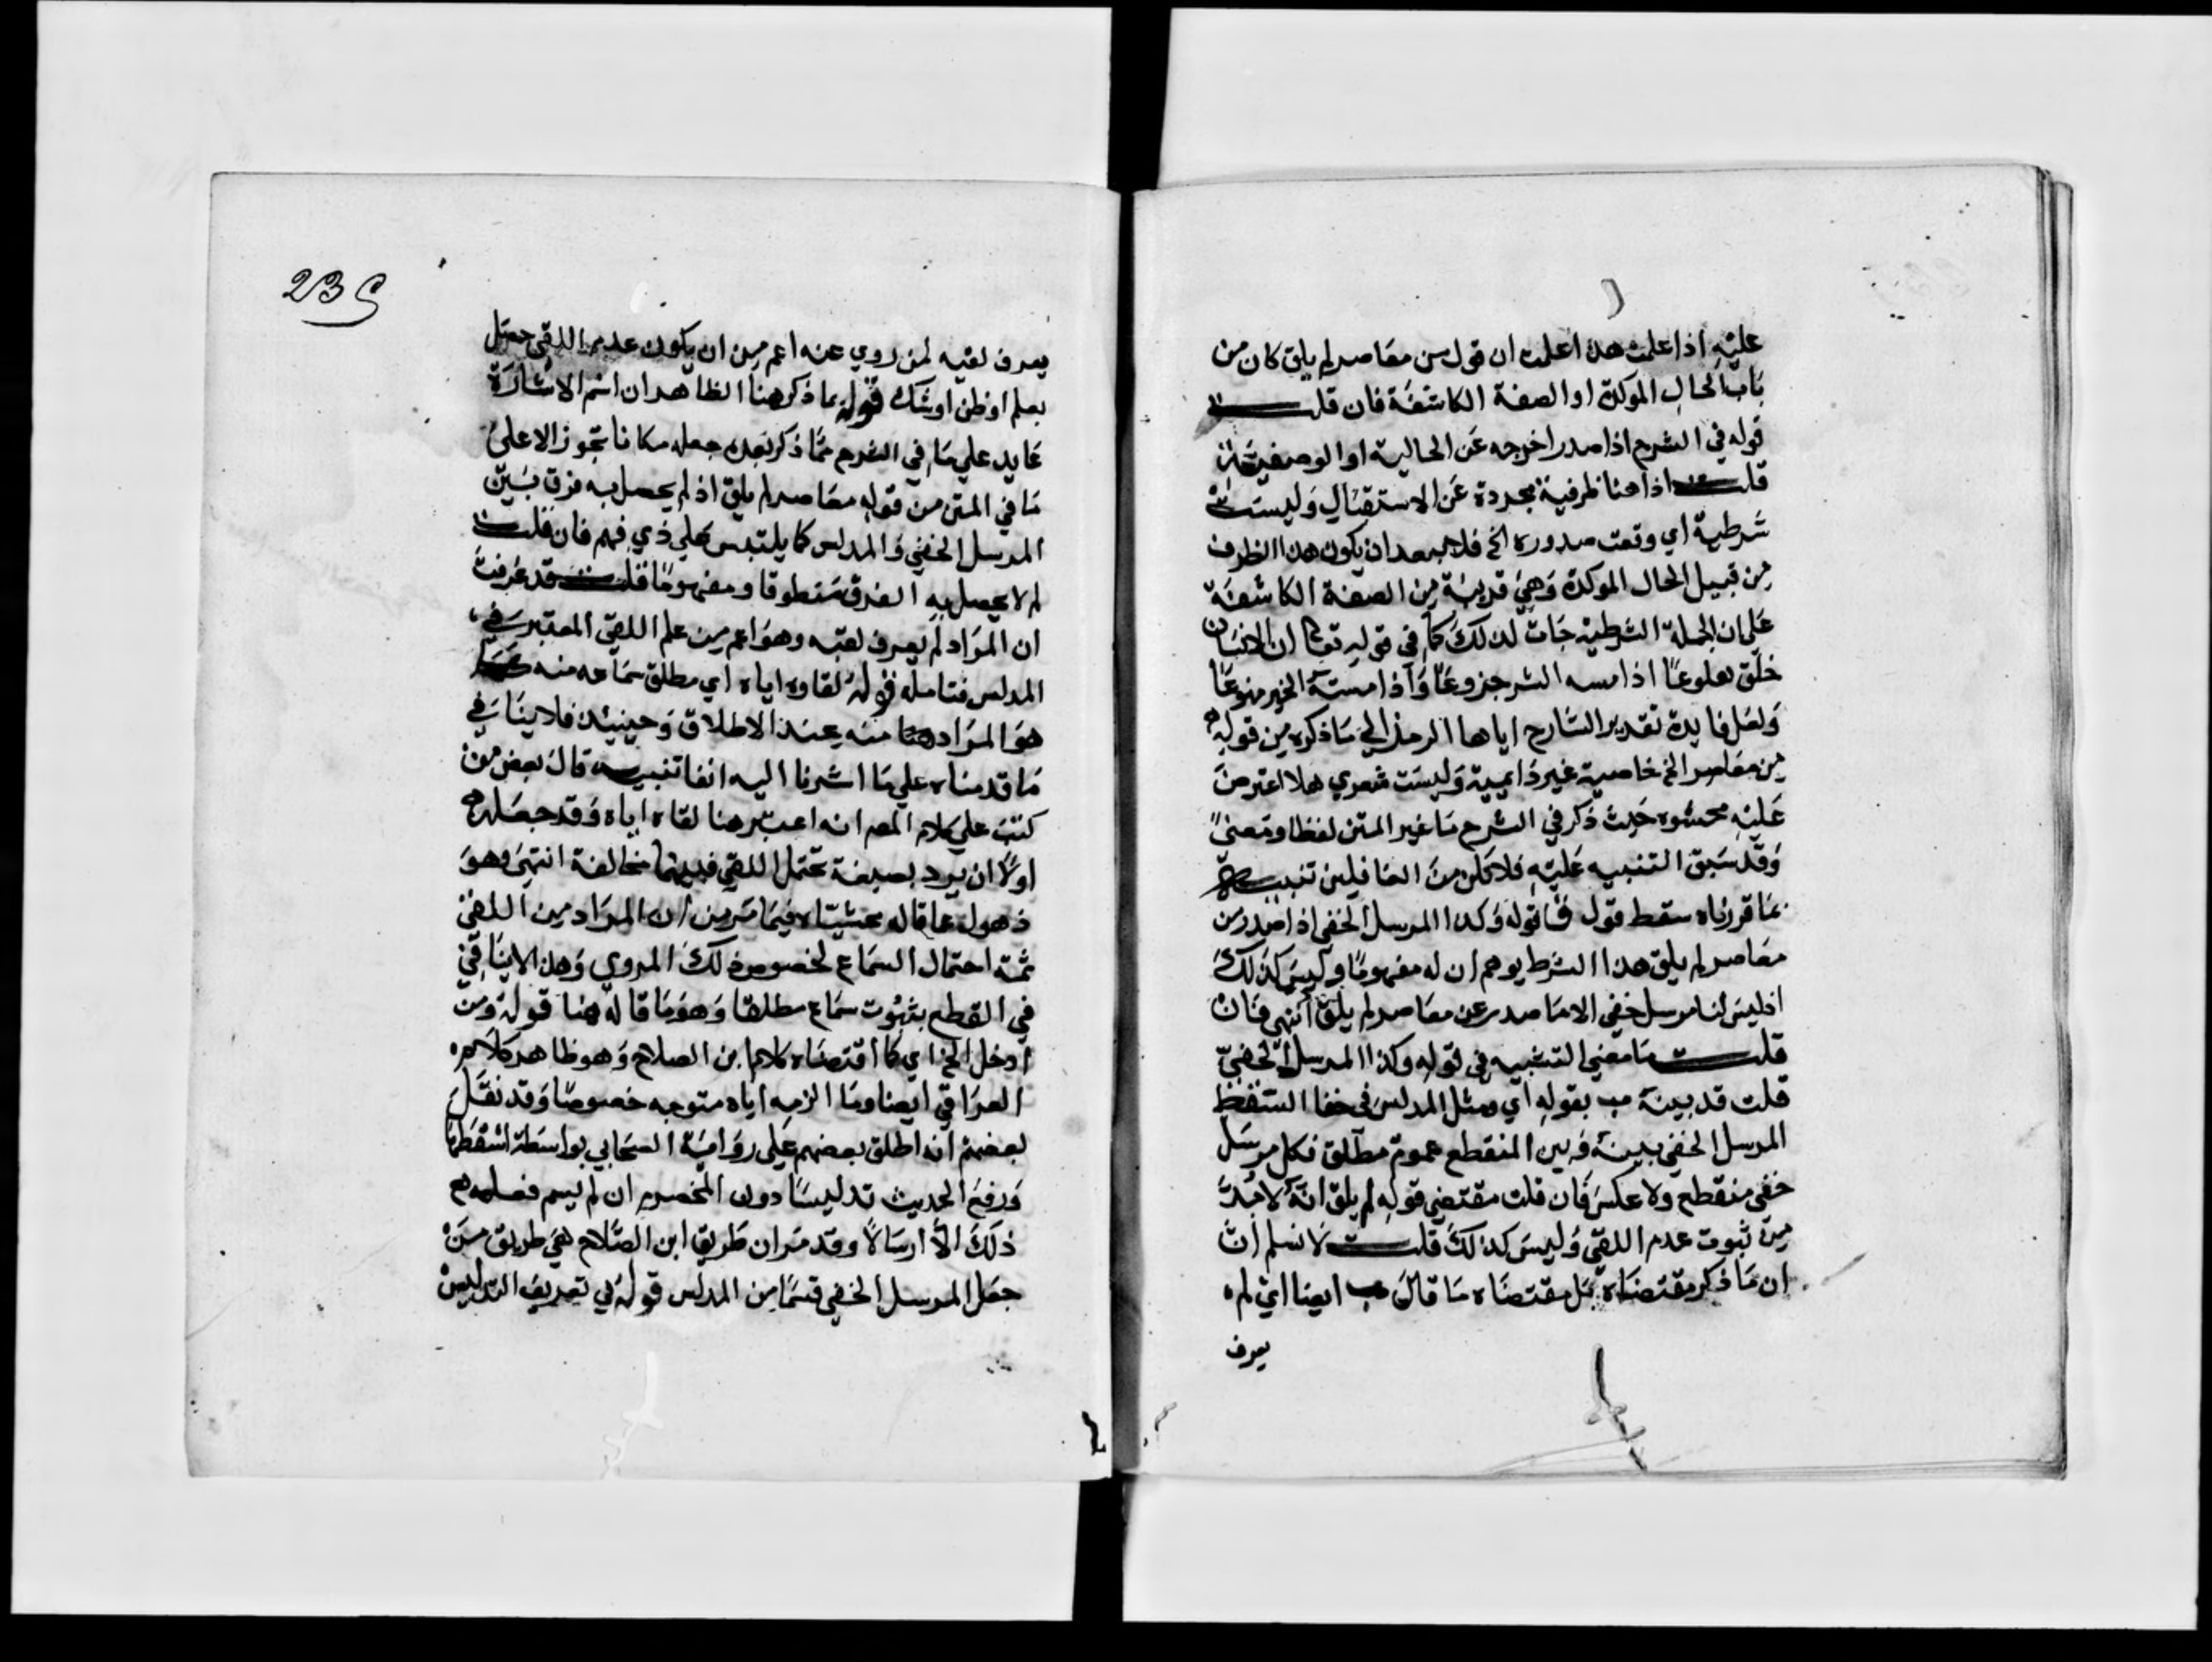 عليه اذا علمت هذا علمت ان قوله من معاصر لم يلق كان من
باب الحال الموكدة او الصفة الكاشفة فان قلت
قوله في الشرح اذا صدر اخرجه عن الحالية او الوصفية
قلت اذا هنا ظرفية مجردة عن الاستقبال وليست
شرطية اي وقت صدوره الخ فلا يبعد ان يكون هذا الظرف
من قبيل الحال الموكدة وهي قريبة من الصفة الكاشفة
علي ان الجملة الشرطية جات لذلك كما في قوله تعا ان الانسان
خلق هلوعا اذا مسه الشر جزوعا واذا مسه الخير منوعا
ولعل فايدة تقدير الشارح اياها الرمز الي ما ذكره من قوله
من معاصر الخ خاصية غير دايمية وليست شعري هلا اعترض
عليه محشوه حيث ذكر في الشرح ما غير المتن لفظا ومعنى
وقد سبق التنبيه عليه فلا تكن من الغافلين تنبيه
بما قررناه سقط قول ق قوله وكذا المرسل الخفي اذا صدر من
معاصر لم يلق هذا الشرط يوهم ان له مفهوما وليس كذلك
اذ ليس لنا مرسل خفي الا ما صدر عن معاصر لم يلق انتهي فان
قلت ما معني التشبيه في قوله وكذا المرسل الخفي
قلت قد بينه بقوله اي ومثل المدلس في خفا السقط
المرسل الخفي بينه وبين المنقطع عموم مطلق فكل مرسل
خفي منقطع ولا عكس فان قلت مقتضي قوله لم يلق انه لا بد
من ثبوت عدم اللقي وليس كذلك قلت لا نسلم ان
ان ما ذكر مقتضاه بل مقتضاه ما قال ايضا اي لم
يعرف
235
يعرف لقيه لمن روي عنه اعم من ان يكون عدم اللقي حصل
بعلم او ظن او شك قوله بما ذكر هنا الظاهر ان اسم الاشارة
عايد علي ما في الشرح مما ذكر بعده جعله مكانا تجوز الا علي
ما في المتن من قوله معاصر لم يلق اذ لم يحصل به فرق بين
المرسل الخفي والمدلس كما يلتبس علي ذي فهم فان قلت
لم لا يحصل به الفرق منطوقا ومفهوما قلت قد عرفت
ان المراد لم يعرف لقيه وهو اعم من علم اللقي المعتبر في
المدلس فتامله قوله لقاوه اياه اي مطلق سماعه منه
هو المراد منه عند الاطلاق وحينيذ فلا ينافي
ما قدمناه علي ما اشرنا اليه انفا تنبيه قال بعض من
كتب علي كلام المص انه اعتبر هنا لقاه اياه وقد جعله
اولا ان يرد بصيغة تحتمل اللقي فبينهما مخالفة انتهي وهو
ذهول عما قاله محشياه فيما مر من ان المراد من اللقي
ثمة احتمال السماع لخصوص ذلك المروي وهذا لا ينافي
في القطع بثبوت سماع مطلقا وهو ما قاله هنا قوله ومن
ادخل الخ اي كما اقتضاه كلام ابن الصلاح وهو ظاهر كلام
العراقي ايضا وما الزمه اياه متوجه خصوصا وقد نقل
بعضهم انه اطلق بعضهم علي رواية الصحابي بواسطة اسقطها
ورفع الحديث تدليسا دون المخضرم ان لم يسم فعلهم
ذلك الا ارسالا وقد مر ان طريق ابن الصلاح هي طريق من
جعل المرسل الخفي قسما من المدلس قوله في تعريف التدليس